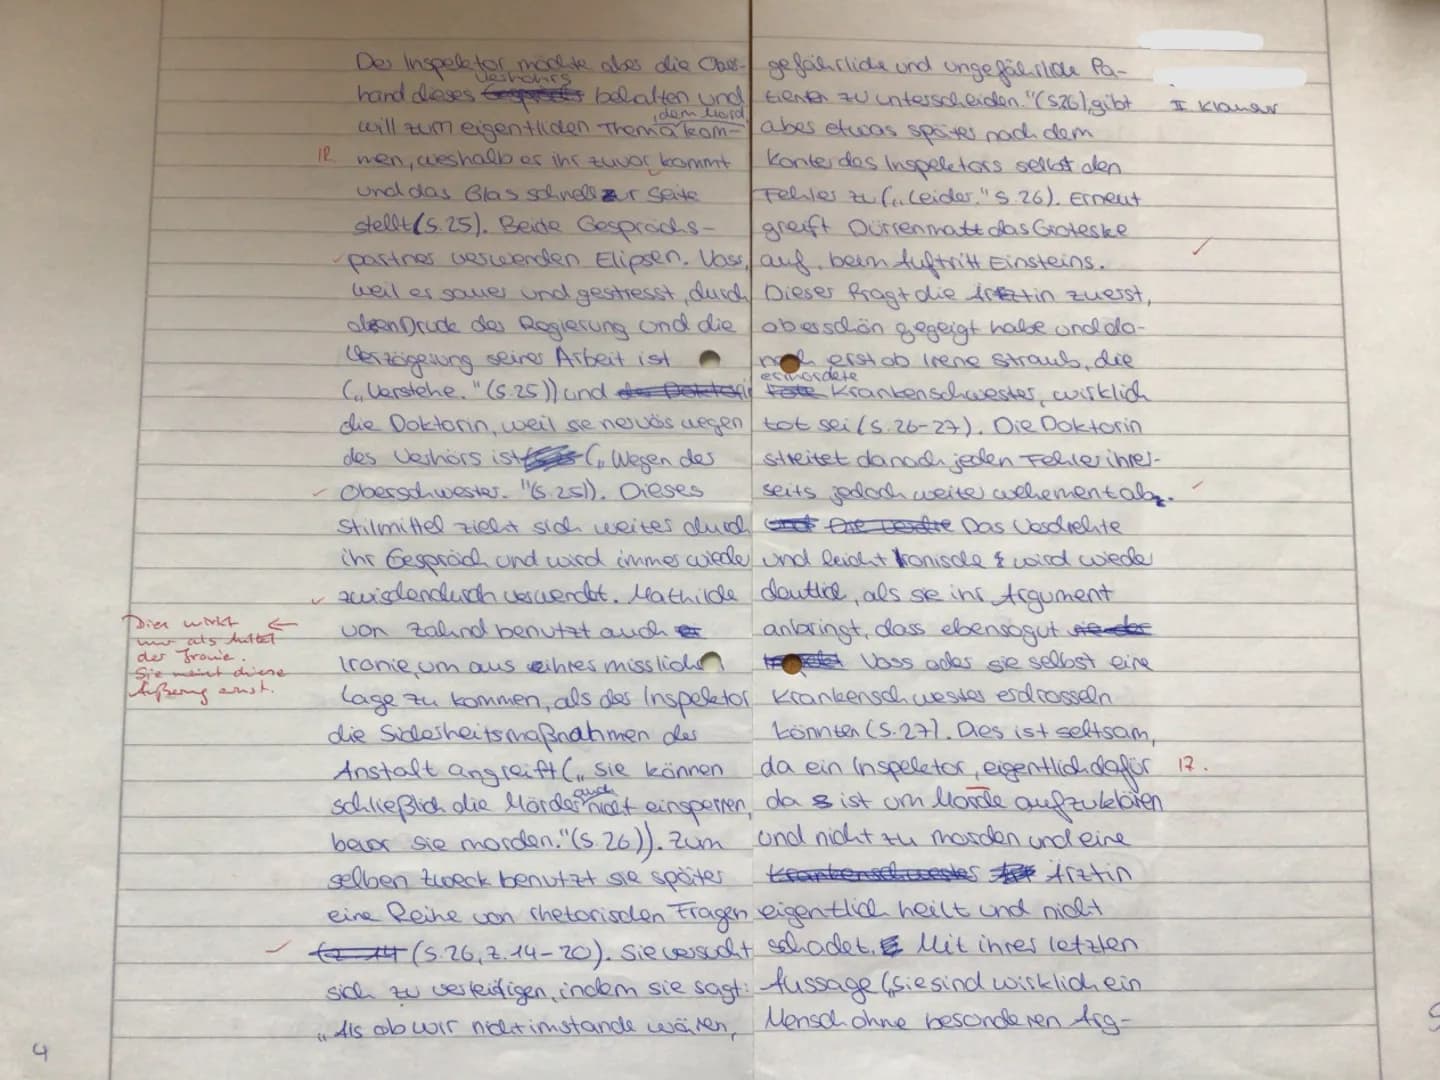 Der Inspektor möchte aber die Ober-
hand dieses Verhörs behalten und
will zum eigentlichen Thema, dem Mord, kom-
men, weshalb er ihr zuvor kommt
und das Glas schnell zur Seite
stellt (S.25). Beide Gesprächs-
partner verwenden Elipsen. Voss,
weil er sauer und gestresst, durch
den Druck der Regierung und die
Verzögerung seiner Arbeit ist
(„Verstehe." (S.25)) und
die Doktorin, weil sie nervös wegen
des Verhörs ist („Wegen der
Oberschwester. "(S.25)). Dieses
Stilmittel zieht sich weiter durch
ihr Gespräch und wird immer wieder
zwischendurch verwendet. Mathilde
von Zahnd benutzt auch
Ironie, um aus ihrer misslichen
Lage zu kommen, als der Inspektor
die Sicherheitsmaßnahmen der
Anstalt angreift („Sie können
schließlich die Mörder auch nicht einsperren,
bevor sie morden."(S.26)). Zum
selben Zweck benutzt sie später
eine Reihe von rhetorischen Fragen
(S.26, Z.14-20). Sie versucht
sich zu verteidigen, indem sie sagt:
„Als ob wir nicht imstande wären,
4
R
Dies wirkt
nur als Mittel
der Ironie.
Sie meint diese
Äußerung ernst.
gefährliche und ungefährliche Pa-
tienten zu unterscheiden."(S26), gibt
aber etwas später nach dem
Konter des Inspektors selbst den
Fehler zu („Leider." S.26). Erneut
greift Dürrenmatt das Groteske
auf, beim Auftritt Einsteins.
Dieser fragt die Ärztin zuerst,
ob er schön gegeigt habe und da-
nach erst ob Irene Straub, die
ermordete Krankenschwester, wirklich
tot sei (S.26-27). Die Doktorin
streitet danach jeden Fehler ihrer-
seits jedoch weiter vehement ab.
Das Verdrehte
und leicht Ironische wird wieder
deutlich, als sie ihr Argument
anbringt, dass ebensogut
Voss oder sie selbst eine
Krankenschwester erdrosseln
könnten (S.27). Dies ist seltsam,
da ein Inspektor, eigentlich dafür
da ist um Morde aufzuklären
und nicht zu morden und eine
Ärztin
eigentlich heilt und nicht
schadet. Mit ihrer letzten
Aussage („Sie sind wirklich ein
Mensch ohne besonderen Arg-
II Klausur